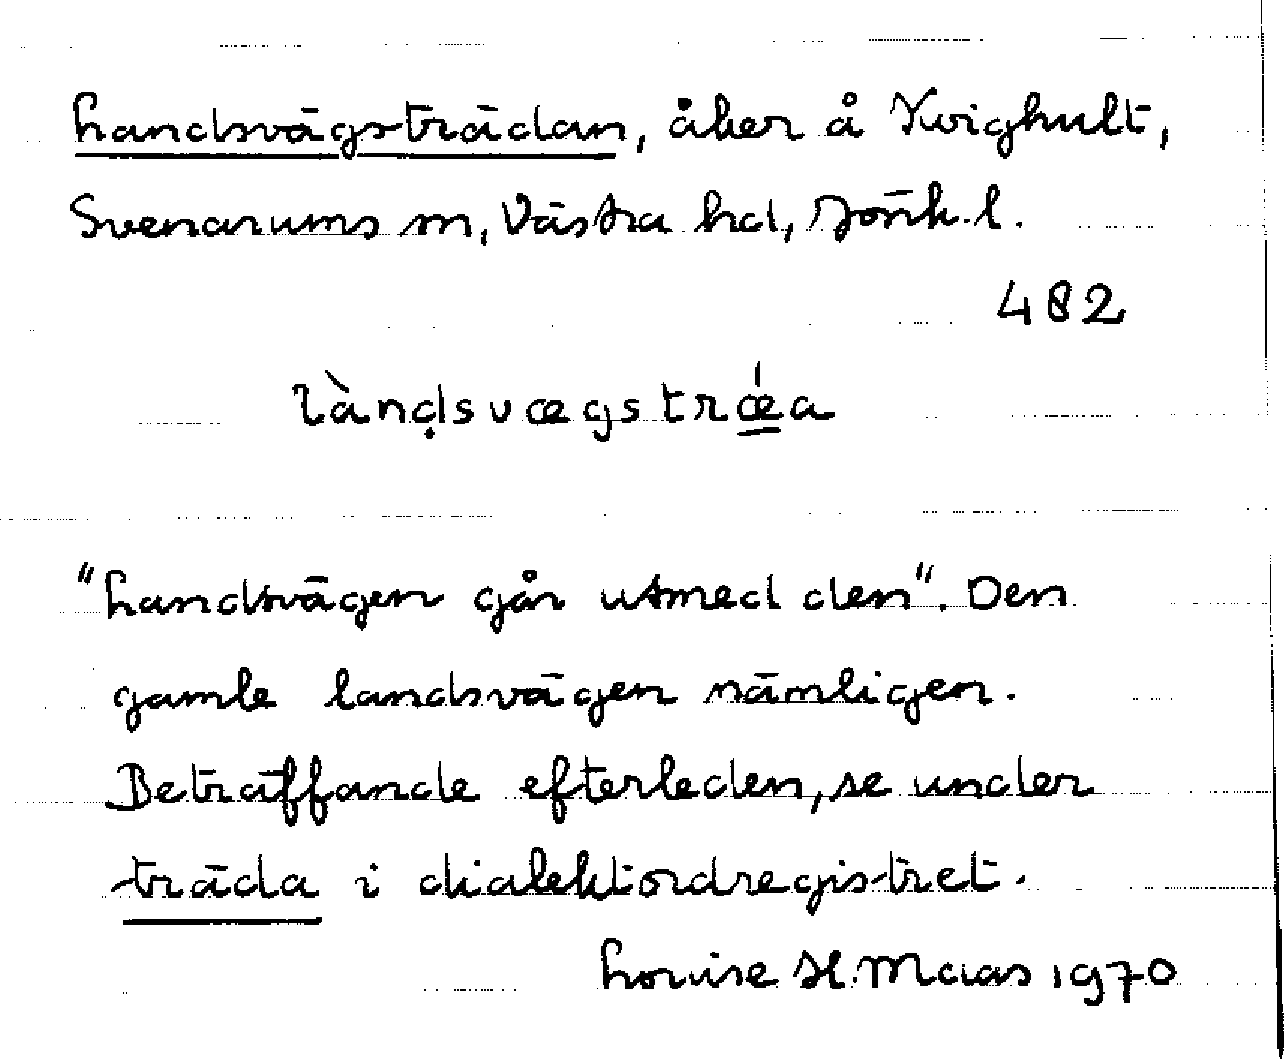 Landsvägsträdan, åker å Kvighult,
Svenarums sn, Västra hd, Jönk. l.
482
làndsvægstrǽa
"Landsvägen går utmed den". Den
gamle landsvägen nämligen.
Beträffande efterleden, se under
träda i dialektordregistret.
Louise H. Maas 1970